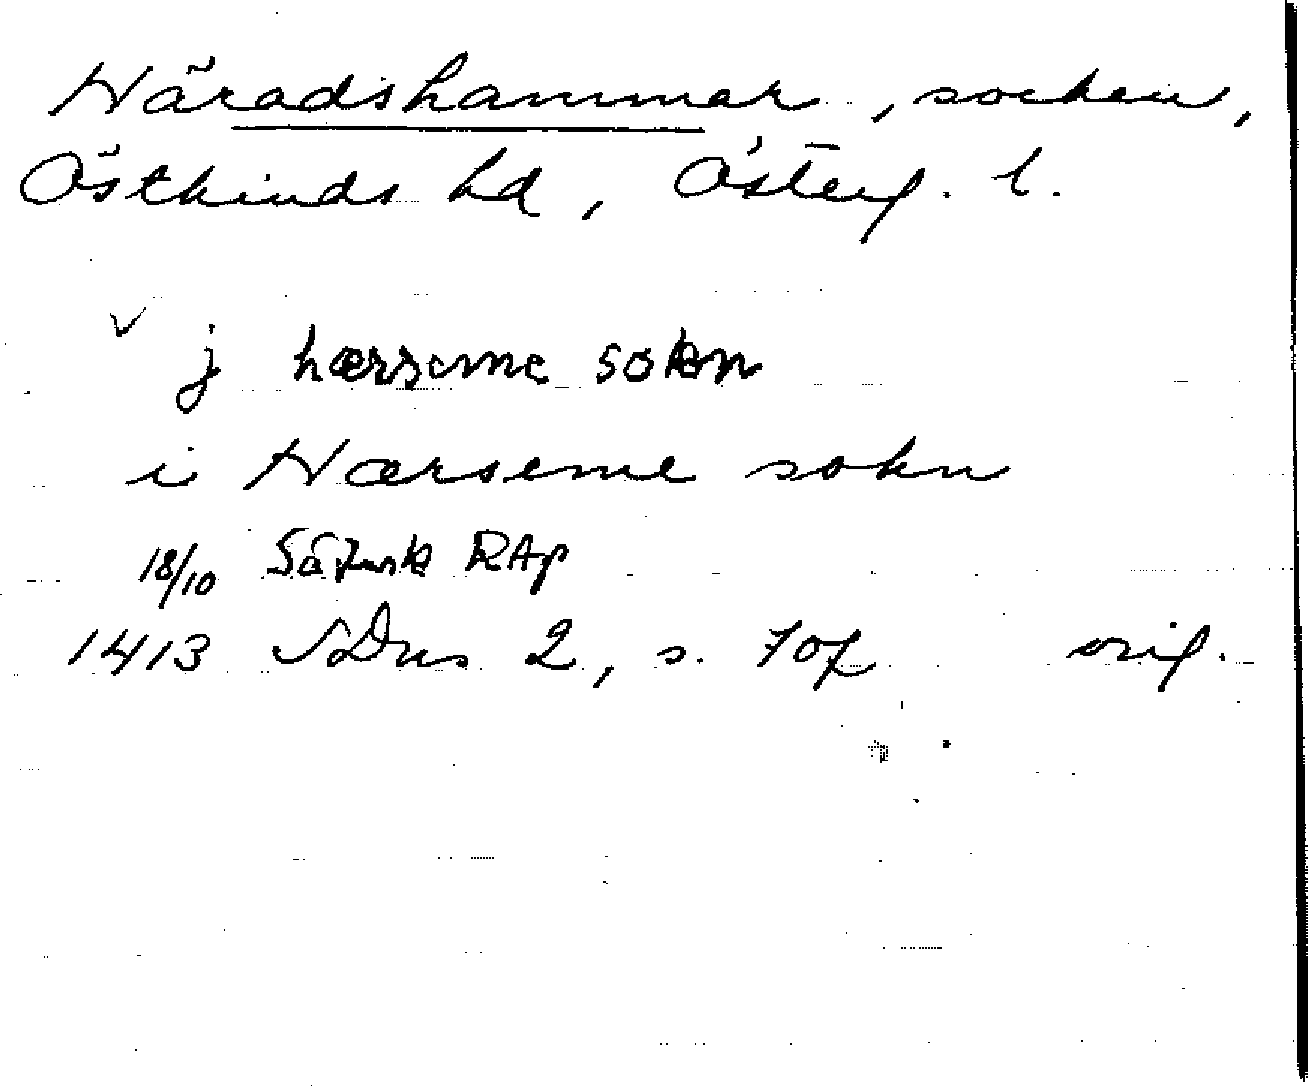 Häradshammar, socken,
Östkinds hd, Österg. l.
j hærseme sokn
i Hærseme sokn
18/10 Såtunk RAp
1413 SDns 2, s. 707 orig.